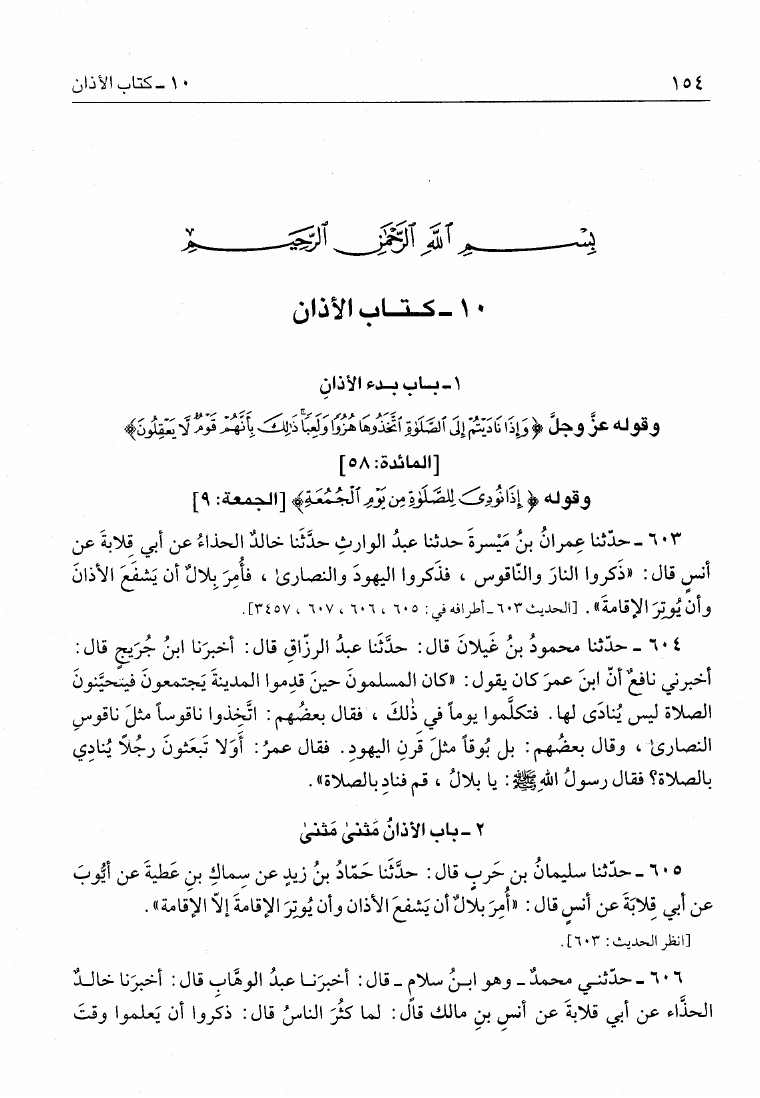 ١٥٤ ١٠ ـ كتاب الأذان
بِسْمِ ٱللَّهِ ٱلرَّحْمَٰنِ ٱلرَّحِيمِ
١٠ ـ كـتـاب الأذان
١ ـ بـاب بـدء الأذانِ
وقوله عزَّ وجلَّ ﴿وَإِذَا نَادَيْتُمْ إِلَى ٱلصَّلَوٰةِ ٱتَّخَذُوهَا هُزُوًا وَلَعِبًا ۚ ذَٰلِكَ بِأَنَّهُمْ قَوْمٌ لَّا يَعْقِلُونَ﴾
[المائدة: ٥٨]
وقوله ﴿إِذَا نُودِىَ لِلصَّلَوٰةِ مِن يَوْمِ ٱلْجُمُعَةِ﴾ [الجمعة: ٩]
٦٠٣ ـ حدّثنا عِمرانُ بنُ مَيْسرةَ حدثنا عبدُ الوارثِ حدَّثَنا خالدٌ الحذاءُ عن أبي قِلابةَ عن
أنسٍ قال: «ذَكروا النارَ والنّاقوس ، فذَكروا اليهودَ والنصارىٰ ، فأُمِرَ بِلالٌ أن يَشْفَعَ الأذانَ
وأن يُوتِرَ الإقامةَ». [الحديث ٦٠٣ ـ أطرافه في: ٦٠٥ ، ٦٠٦ ، ٦٠٧ ، ٣٤٥٧].
٦٠٤ ـ حدّثنا محمودُ بنُ غَيلانَ قال: حدَّثَنا عبدُ الرزّاقِ قال: أخبرَنا ابنُ جُرَيجٍ قال:
أخبرني نافعٌ أنّ ابنَ عمرَ كان يقول: «كان المسلمونَ حينَ قدِموا المدينةَ يَجتمعونَ فيتحيَّنونَ
الصلاةَ ليس يُنادَى لها. فتكلَّموا يوماً في ذٰلكَ ، فقال بعضُهم: اتَّخِذوا ناقوساً مثلَ ناقوسِ
النصارىٰ ، وقال بعضُهم: بل بُوقاً مثلَ قَرنِ اليهودِ. فقال عمرُ: أوَلا تَبعَثونَ رجُلاً يُنادِي
بالصلاةِ؟ فقال رسولُ اللهِ ﷺ: يا بلالُ ، قم فنادِ بالصلاة».
٢ ـ باب الأذانُ مَثنىٰ مَثنىٰ
٦٠٥ ـ حدّثنا سليمانُ بن حَربٍ قال: حدَّثَنا حَمّادُ بنُ زيدٍ عن سِماكِ بنِ عَطيةَ عن أيُّوبَ
عن أبي قِلابَةَ عن أنسٍ قال: «أُمِرَ بلالٌ أن يَشفعَ الأذان وأن يُوتِرَ الإقامةَ إلاّ الإقامة».
[انظر الحديث: ٦٠٣].
٦٠٦ ـ حدّثنـي محمدٌ ـ وهو ابـنُ سلامٍ ـ قال: أخبرَنـا عبدُ الوهَّابِ قال: أخبرَنا خالـدٌ
الحذَّاء عن أبي قلابةَ عن أنسِ بنِ مالك قال: لما كثُرَ الناسُ قال: ذكروا أن يَعلموا وقتَ